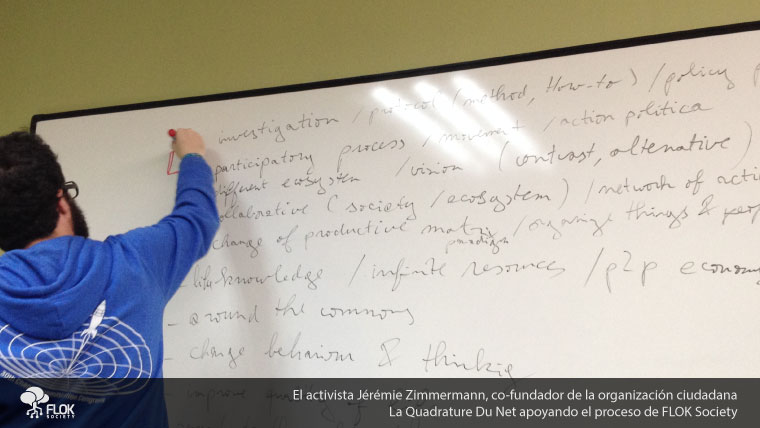 investigation / protocol / method, How-to) / policy
participatory process / movement / action politica
different ecosystem / vision (contrast, alternative)
collaborative (society / ecosystem) / network of acti
change of productive matrix / organize things & peop
paradigm
- life-knowledge / infinite resources / p2p econom
- around the commons
- change behaviour & thinkig
- improve
FLOK
SOCIETY
El activista Jérémie Zimmermann, co-fundador de la organización ciudadana
La Quadrature Du Net apoyando el proceso de FLOK Society